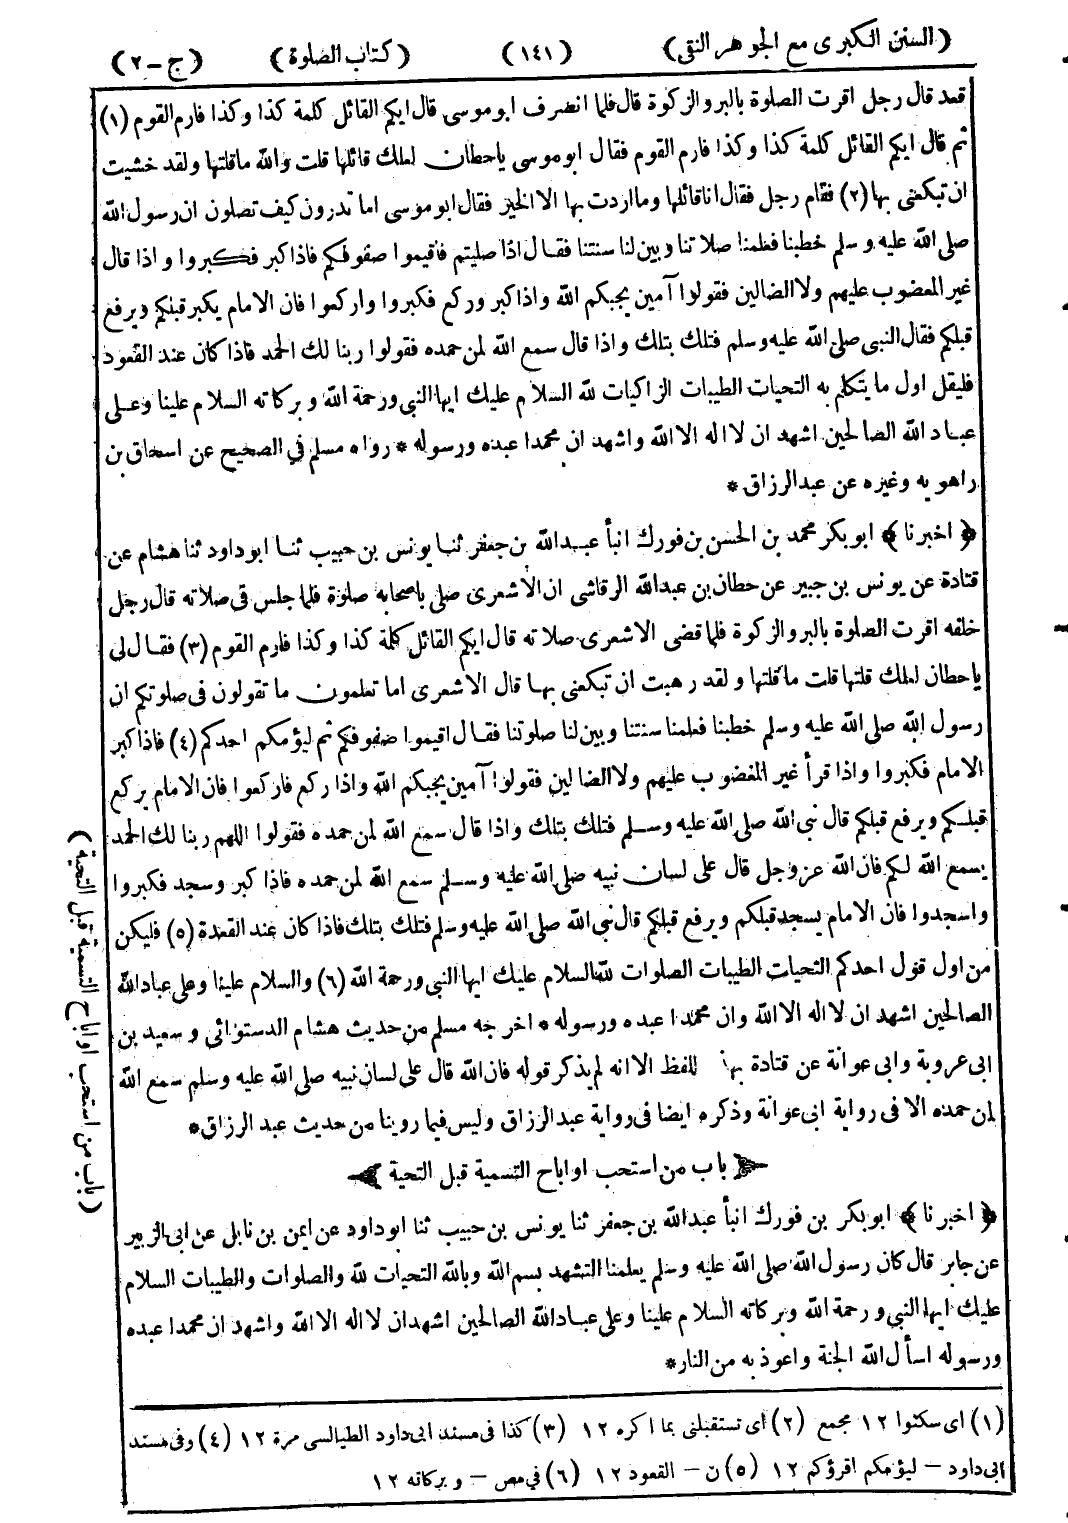 (السنن الكبرى مع الجوهر النقى) (١٤١) (كتاب الصلوة) (ج-٢)
قعد قال رجل اقرت الصلوة بالبر والزكوة قال فلما انصرف ابو موسى قال ايكم القائل كلمة كذا وكذا فارم القوم (١)
ثم قال ايكم القائل كلمة كذا وكذا فارم القوم فقال ابو موسى ياحطان لعلك قائلها قلت والله ماقلتها ولقد خشيت
ان تبكعنى بها (٢) فقام رجل فقال انا قائلها وما اردت بها الا الخير فقال ابو موسى اما تدرون كيف تصلون ان رسول الله
صلى الله عليه وسلم خطبنا فعلمنا صلاتنا وبين لنا سنتنا فقال اذا صليتم فاقيموا صفوفكم فاذا كبر فكبروا واذا قال
غير المغضوب عليهم ولا الضالين فقولوا آمين يجبكم الله واذا كبر وركع فكبروا واركعوا فان الامام يكبر قبلكم ويرفع
قبلكم فقال النبى صلى الله عليه وسلم فتلك بتلك واذا قال سمع الله لمن حمده فقولوا ربنا لك الحمد فاذا كان عند القعود
فليقل اول ما يتكلم به التحيات الطيبات الزاكيات لله السلام عليك ايها النبى ورحمة الله وبركاته السلام علينا وعلى
عباد الله الصالحين اشهد ان لا اله الا الله واشهد ان محمدا عبده ورسوله * رواه مسلم فى الصحيح عن اسحاق بن
راهويه وغيره عن عبد الرزاق *
﴿اخبرنا﴾ ابو بكر محمد بن الحسن بن فورك انبأ عبد الله بن جعفر ثنا يونس بن حبيب ثنا ابو داود ثنا هشام عن
قتادة عن يونس بن جبير عن حطان بن عبد الله الرقاشى ان الأشعرى صلى باصحابه صلوة فلما جلس فى صلاته قال رجل
خلفه اقرت الصلوة بالبر والزكوة فلما قضى الاشعرى صلاته قال ايكم القائل كلمة كذا وكذا فارم القوم (٣) فقال لى
ياحطان لعلك قلتها قلت ما قلتها ولقد رهبت ان تبكعنى بها قال الاشعرى اما تعلمون ما تقولون فى صلوتكم ان
رسول الله صلى الله عليه وسلم خطبنا فعلمنا سنتنا وبين لنا صلوتنا فقال اقيموا صفوفكم ثم ليؤمكم احدكم (٤) فاذا كبر
الامام فكبروا واذا قرأ غير المغضوب عليهم ولا الضالين فقولوا آمين يجبكم الله واذا ركع فاركعوا فان الامام يركع
قبلكم ويرفع قبلكم قال نبى الله صلى الله عليه وسلم فتلك بتلك واذا قال سمع الله لمن حمده فقولوا اللهم ربنا لك الحمد
يسمع الله لكم فان الله عز وجل قال على لسان نبيه صلى الله عليه وسلم سمع الله لمن حمده فاذا كبر وسجد فكبروا
واسجدوا فان الامام يسجد قبلكم ويرفع قبلكم قال نبى الله صلى الله عليه وسلم فتلك بتلك فاذا كان عند القعدة (٥) فليكن
من اول قول احدكم التحيات الطيبات الصلوات لله السلام عليك ايها النبى ورحمة الله (٦) والسلام علينا وعلى عباد الله
الصالحين اشهد ان لا اله الا الله وان محمدا عبده ورسوله * اخرجه مسلم من حديث هشام الدستوائى وسعيد بن
ابى عروبة وابى عوانة عن قتادة بهذا اللفظ الا انه لم يذكر قوله فان الله قال على لسان نبيه صلى الله عليه وسلم سمع الله
لمن حمده الا فى رواية ابى عوانة وذكره ايضا فى رواية عبد الرزاق وليس فيما روينا من حديث عبد الرزاق *
باب من استحب او اباح التسمية قبل التحية
﴿اخبرنا﴾ ابو بكر بن فورك انبأ عبد الله بن جعفر ثنا يونس بن حبيب ثنا ابو داود عن ايمن بن نابل عن ابى الزبير
عن جابر قال كان رسول الله صلى الله عليه وسلم يعلمنا التشهد بسم الله وبالله التحيات لله والصلوات والطيبات السلام
عليك ايها النبى ورحمة الله وبركاته السلام علينا وعلى عباد الله الصالحين اشهد ان لا اله الا الله واشهد ان محمدا عبده
ورسوله اسأل الله الجنة واعوذ به من النار *
(١) اى سكتوا ١٢ مجمع (٢) اى تستقبلنى بما اكره ١٢ (٣) كذا فى مسند ابى داود الطيالسى مرة ١٢ (٤) وفى مسند
ابى داود - ليؤمكم اقرؤكم ١٢ (٥) ن - القعود ١٢ (٦) فى مص - وبركاته ١٢
(باب من استحب او اباح التسمية قبل التحية)